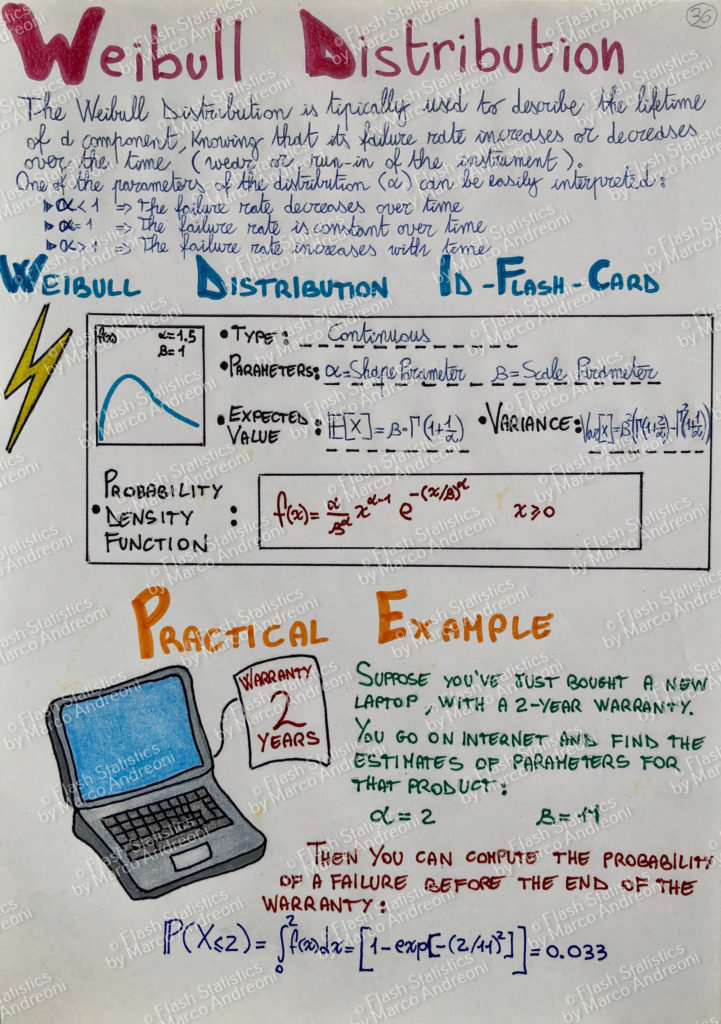 36
Weibull Distribution
The Weibull Distribution is tipically used to describe the lifetime
of a component, knowing that its failure rate increases or decreases
over the time (wear or run-in of the instrument).
One of the parameters of the distribution (α) can be easily interpreted:
▹ α < 1 => The failure rate decreases over time
▹ α = 1 => The failure rate is constant over time
▹ α > 1 => The failure rate increases with time
Weibull Distribution Id-Flash-Card
f(x) α=1.5
β=1
• Type: Continuous
• Parameters: α=Shape Parameter β=Scale Parameter
• Expected Value: E[X]=β·Γ(1+1/α) • Variance: Var[X]=β²(Γ(1+2/α)-Γ²(1+1/α))
• Probability
Density
Function :
f(x)= α/β^α x^(α-1) e^(-(x/β)^α) x⩾0
Practical Example
Warranty
2
Years
Suppose you've just bought a new
laptop, with a 2-year warranty.
You go on internet and find the
estimates of parameters for
that product:
α = 2 β = 11
Then you can compute the probability
of a failure before the end of the
warranty:
P(X⩽2) = ∫₀² f(x)dx = [1-exp[-(2/11)²]] = 0.033
© Flash Statistics
by Marco Andreoni